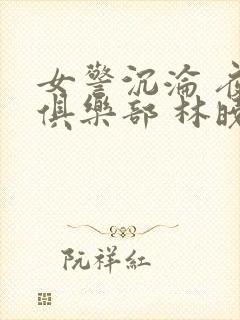 女警沉淪 夜
俱樂部 林曉
阮祥紅